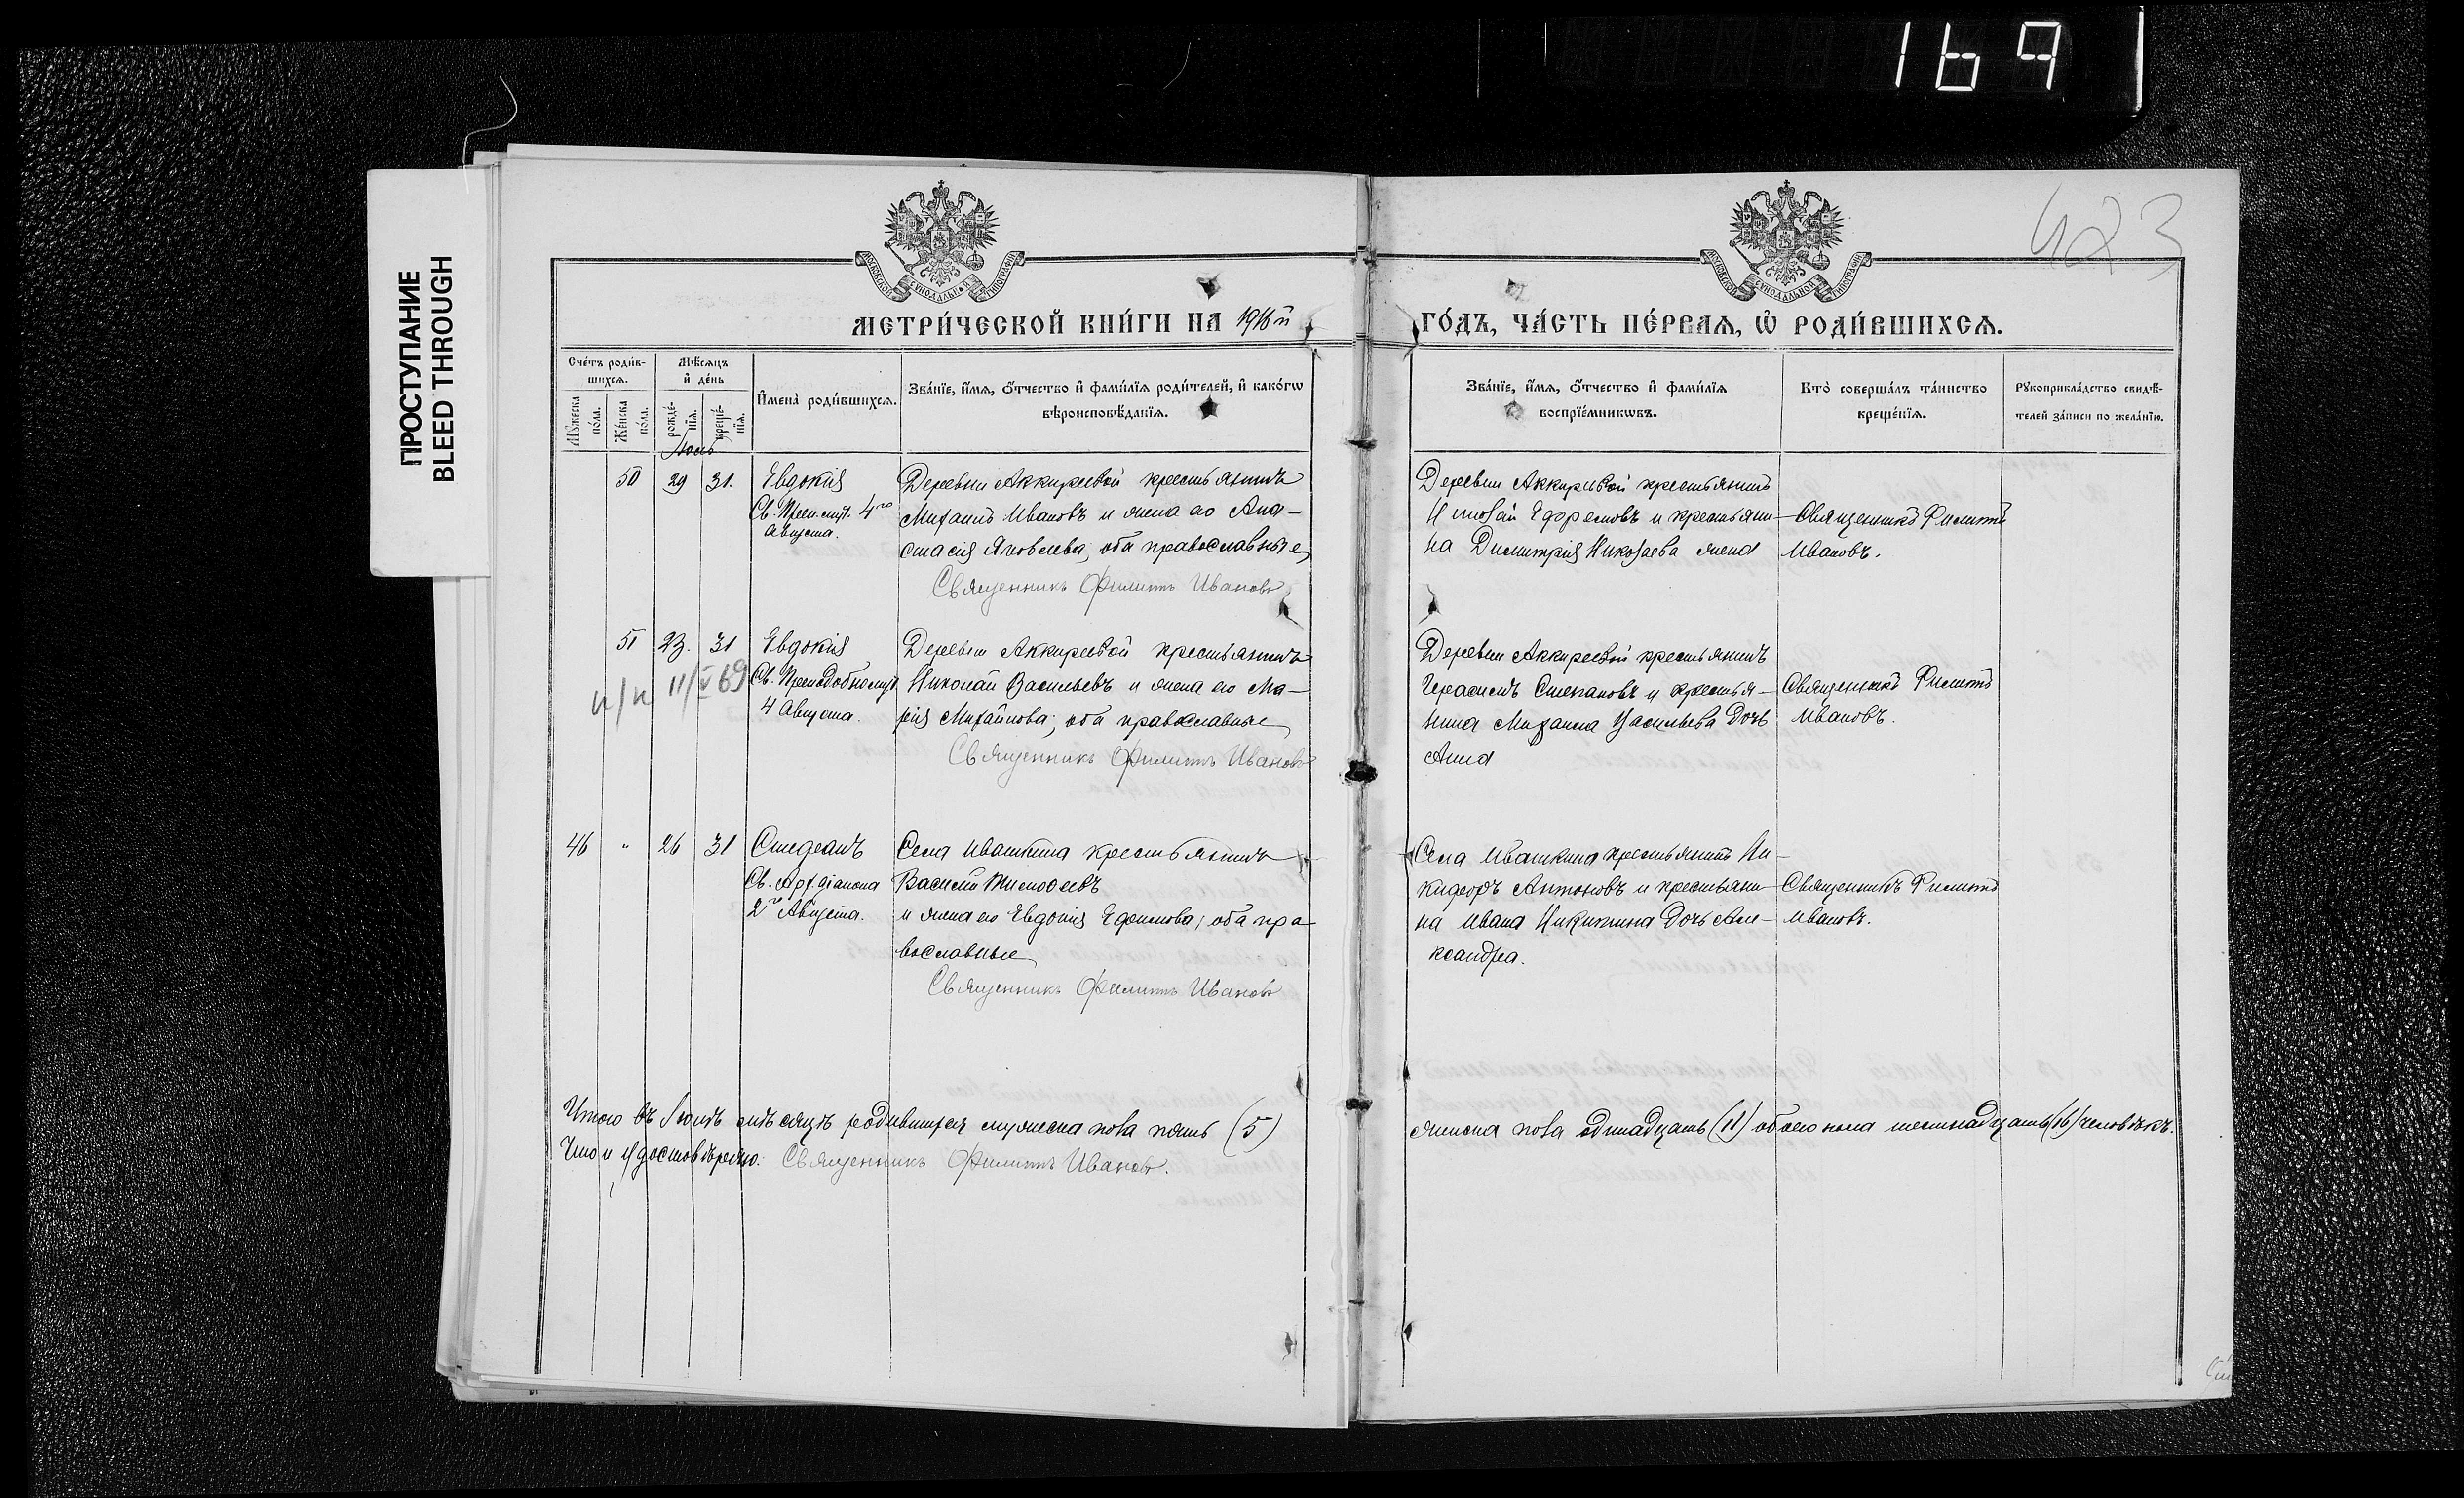 169
ПРОСТУПАНИЕ
BLEED THROUGH
423
МОСКОВСКОЙ СѴНОДАЛЬНОЙ ТИПОГРАФІИ
МОСКОВСКОЙ СѴНОДАЛЬНОЙ ТИПОГРАФІИ
МЕТРИ́ЧЕСКОЙ КНИ́ГИ НА 1916й ГО́ДЪ, ЧА́СТЬ ПЕ́РВАЯ, Ѡ РОДИ́ВШИХСЯ.
Сче́тъ роди́в-
шихся.
Мꙋ́жеска
по́ла.
Же́нска
по́ла.
Мѣ́сяцъ
и҆ де́нь
рожде́-
нїя.
креще́-
нїя.
И҆мена̀ роди́вшихся.
Зва́нїе, и҆́мя, ѻ҆́тчество и҆ фами́лїя роди́телей, и҆ како́гѡ
вѣроисповѣ́данїя.
Зва́нїе, и҆́мя, ѻ҆́тчество и҆ фами́лїя
воспрїе́мникѡвъ.
Кто̀ соверша́лъ та́инство
креще́нїя.
Рꙋкоприкла́дство свидѣ́-
телей за́писи по жела́нїю.
Іюль
50 29 31. Евдокія
Св. Преп. муч. 4го
Августа.
Деревни Аккиреевой крестьянинъ
Михаилъ Ивановъ и жена его Ана-
стасія Яковлева, оба православные
Священникъ Филиппъ Ивановъ
Деревни Аккиреевой крестьянинъ
Николай Ефремовъ и крестьяни-
на Димитрія Николаева жена
Священникъ Филиппъ
Ивановъ.
51 23. 31 Евдокія
Св. Преподобномуч.
4 Августа.
п/п 11/V 69
Деревни Аккиреевой крестьянинъ
Николай Васильевъ и жена его Ма-
рія Михайлова; оба православные
Священникъ Филиппъ Ивановъ
Деревни Аккиреевой крестьянинъ
Герасимъ Степановъ и крестья-
нина Михаила Васильева дочь
Анна
Священникъ Филиппъ
Ивановъ.
46 " 26 31 Стефанъ
Св. Архидіакона
2го Августа.
Села Ивашкина крестьянинъ
Василій Тимофеевъ
и жена его Евдокія Ефимова; оба пра
вославные
Священникъ Филиппъ Ивановъ
Села Ивашкина крестьянинъ Ни-
кифоръ Антоновъ и крестьяни-
на Ивана Никитина дочь Але-
ксандра.
Священникъ Филиппъ
Ивановъ.
Итого въ Іюлѣ мѣсяцѣ родившихся мужеска пола пять (5)
женска пола одинадцать (11) обоего пола шестнадцать (16) человѣкъ.
Что и удостовѣряю. Священникъ Филиппъ Ивановъ.